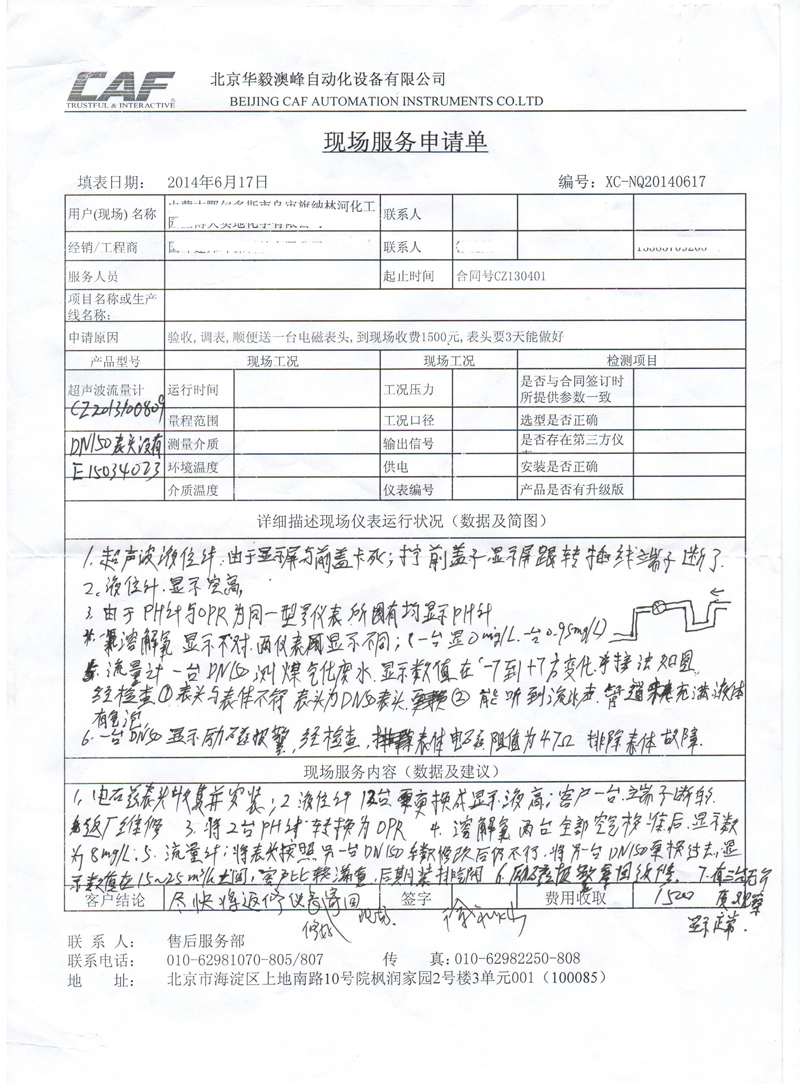 CAF
TRUSTFUL & INTERACTIVE
北京华毅澳峰自动化设备有限公司
BEIJING CAF AUTOMATION INSTRUMENTS CO.LTD
现场服务申请单
填表日期： 2014年6月17日 编号：XC-NQ20140617
用户(现场) 名称 联系人
经销/工程商 联系人
服务人员 起止时间 合同号CZ130401
项目名称或生产
线名称：
申请原因 验收,调表,顺便送一台电磁表头,到现场收费1500元,表头要3天能做好
产品型号 现场工况 现场工况 检测项目
超声波流量计 运行时间 工况压力 是否与合同签订时
所提供参数一致
CZ2013100809 量程范围 工况口径 选型是否正确
DN150表头没有 测量介质 输出信号 是否存在第三方仪
E15034023 环境温度 供电 安装是否正确
介质温度 仪表编号 产品是否有升级版
详细描述现场仪表运行状况（数据及简图）
1. 超声波液位计.由于显示屏与前盖卡死；拧前盖子.显示屏跟转插线端子断了.
2. 液位计.显示空高,
3. 由于PH计与OPR为同一型号仪表.所有均显示PH计
溶解氧 显示不对.两仪表显示不同；(一台显0mg/L.一台0.95mg/L)
5. 流量计一台DN150测煤气化废水.显示数值在-7到+7方变化.接法如图
经检查①表头与表体不符 表头为DN50表头. ②能听到流水声.管道未充满液体
有气泡
6. 一台DN50显示励磁报警,经检查,表体电磁阻值为47Ω 排除表体故障.
现场服务内容（数据及建议）
1, 电磁表头恢复并安装；2 液位计 台更换成显示液高；客户一台端子断的
返厂维修 3. 将2台PH计转换为OPR 4. 溶解氧两台全部空气校准后.显示数
为8mg/L. 5. 流量计；将表头按照另一台DN150参数修改后仍不行.将另一台DN150更换过去,显
示数值在15~25m³/h之间,客户比较满意,后期装排气阀 6. 励磁报警 7.有三台无介
质观察
显示正常.
客户结论 尽快将返修仪表寄回 签字 费用收取 1500
联 系 人： 售后服务部
联系电话： 010-62981070-805/807 传 真:010-62982250-808
地 址： 北京市海淀区上地南路10号院枫润家园2号楼3单元001（100085）